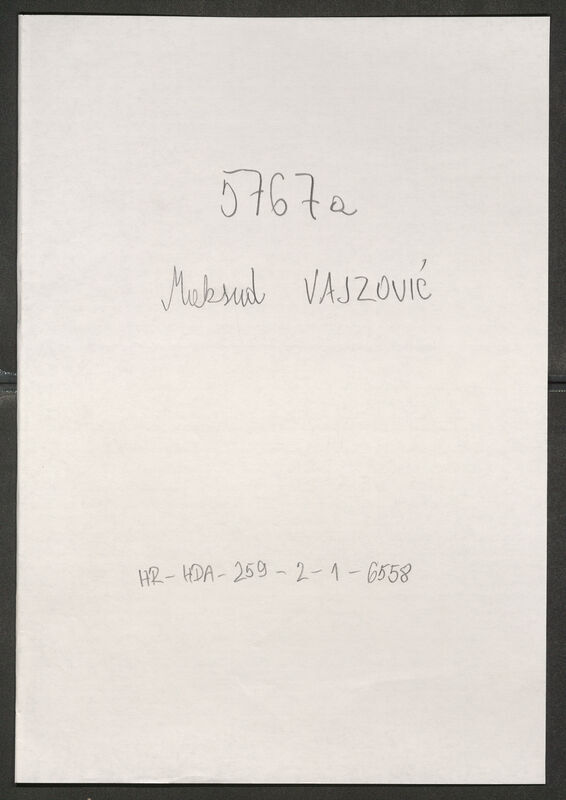 5767a
Maksud VAJZOVIĆ
HR-HDA-259-2-1-6558